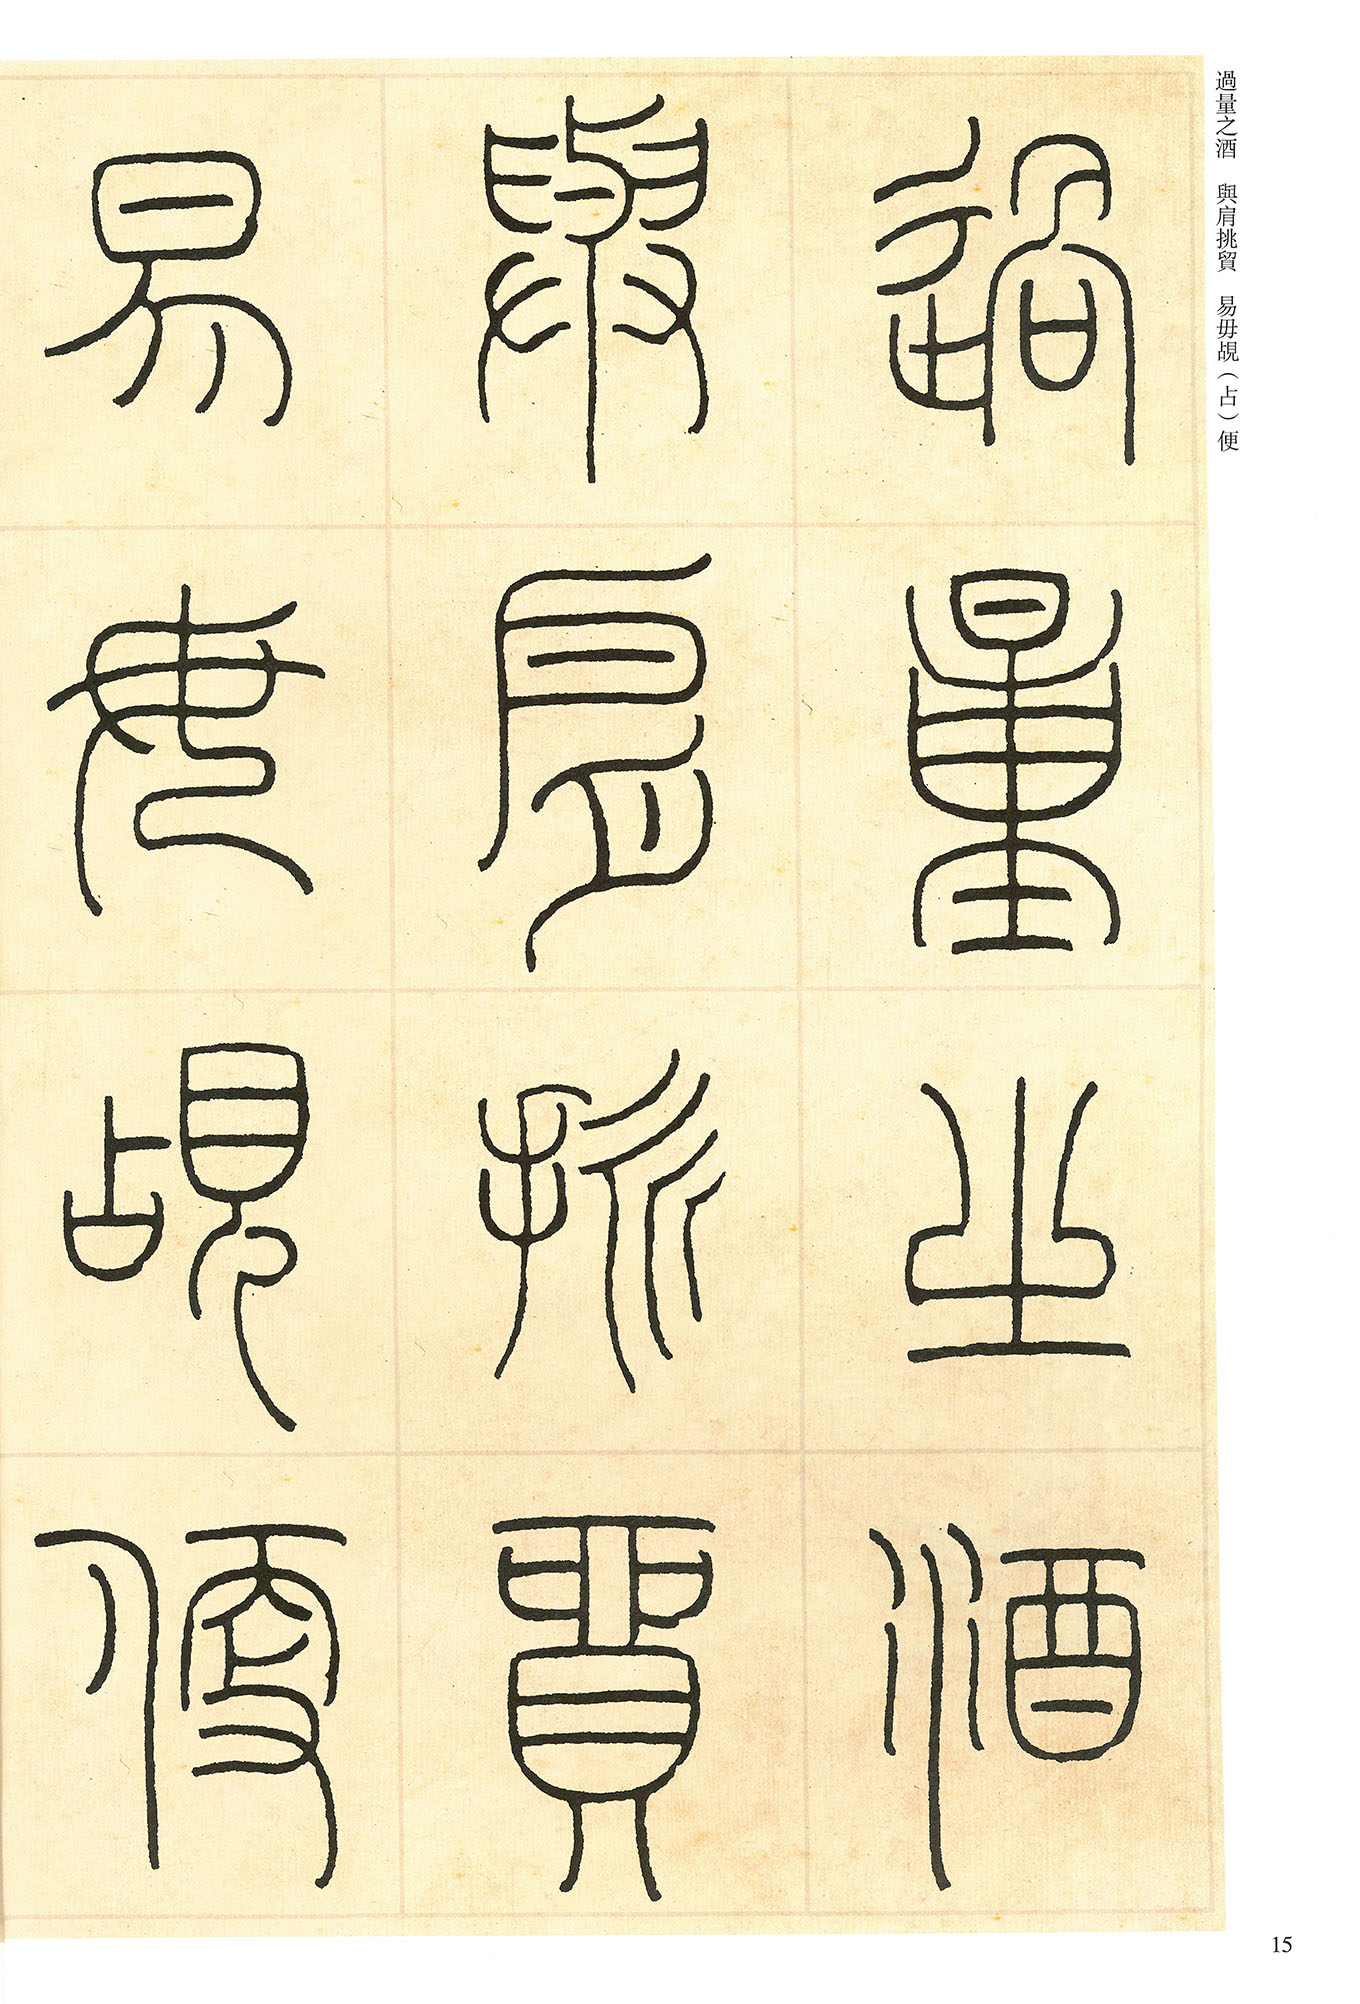 過量之酒　與肩挑貿　易毋覘（占）便
過量之酒
與肩挑貿
易毋覘便
15